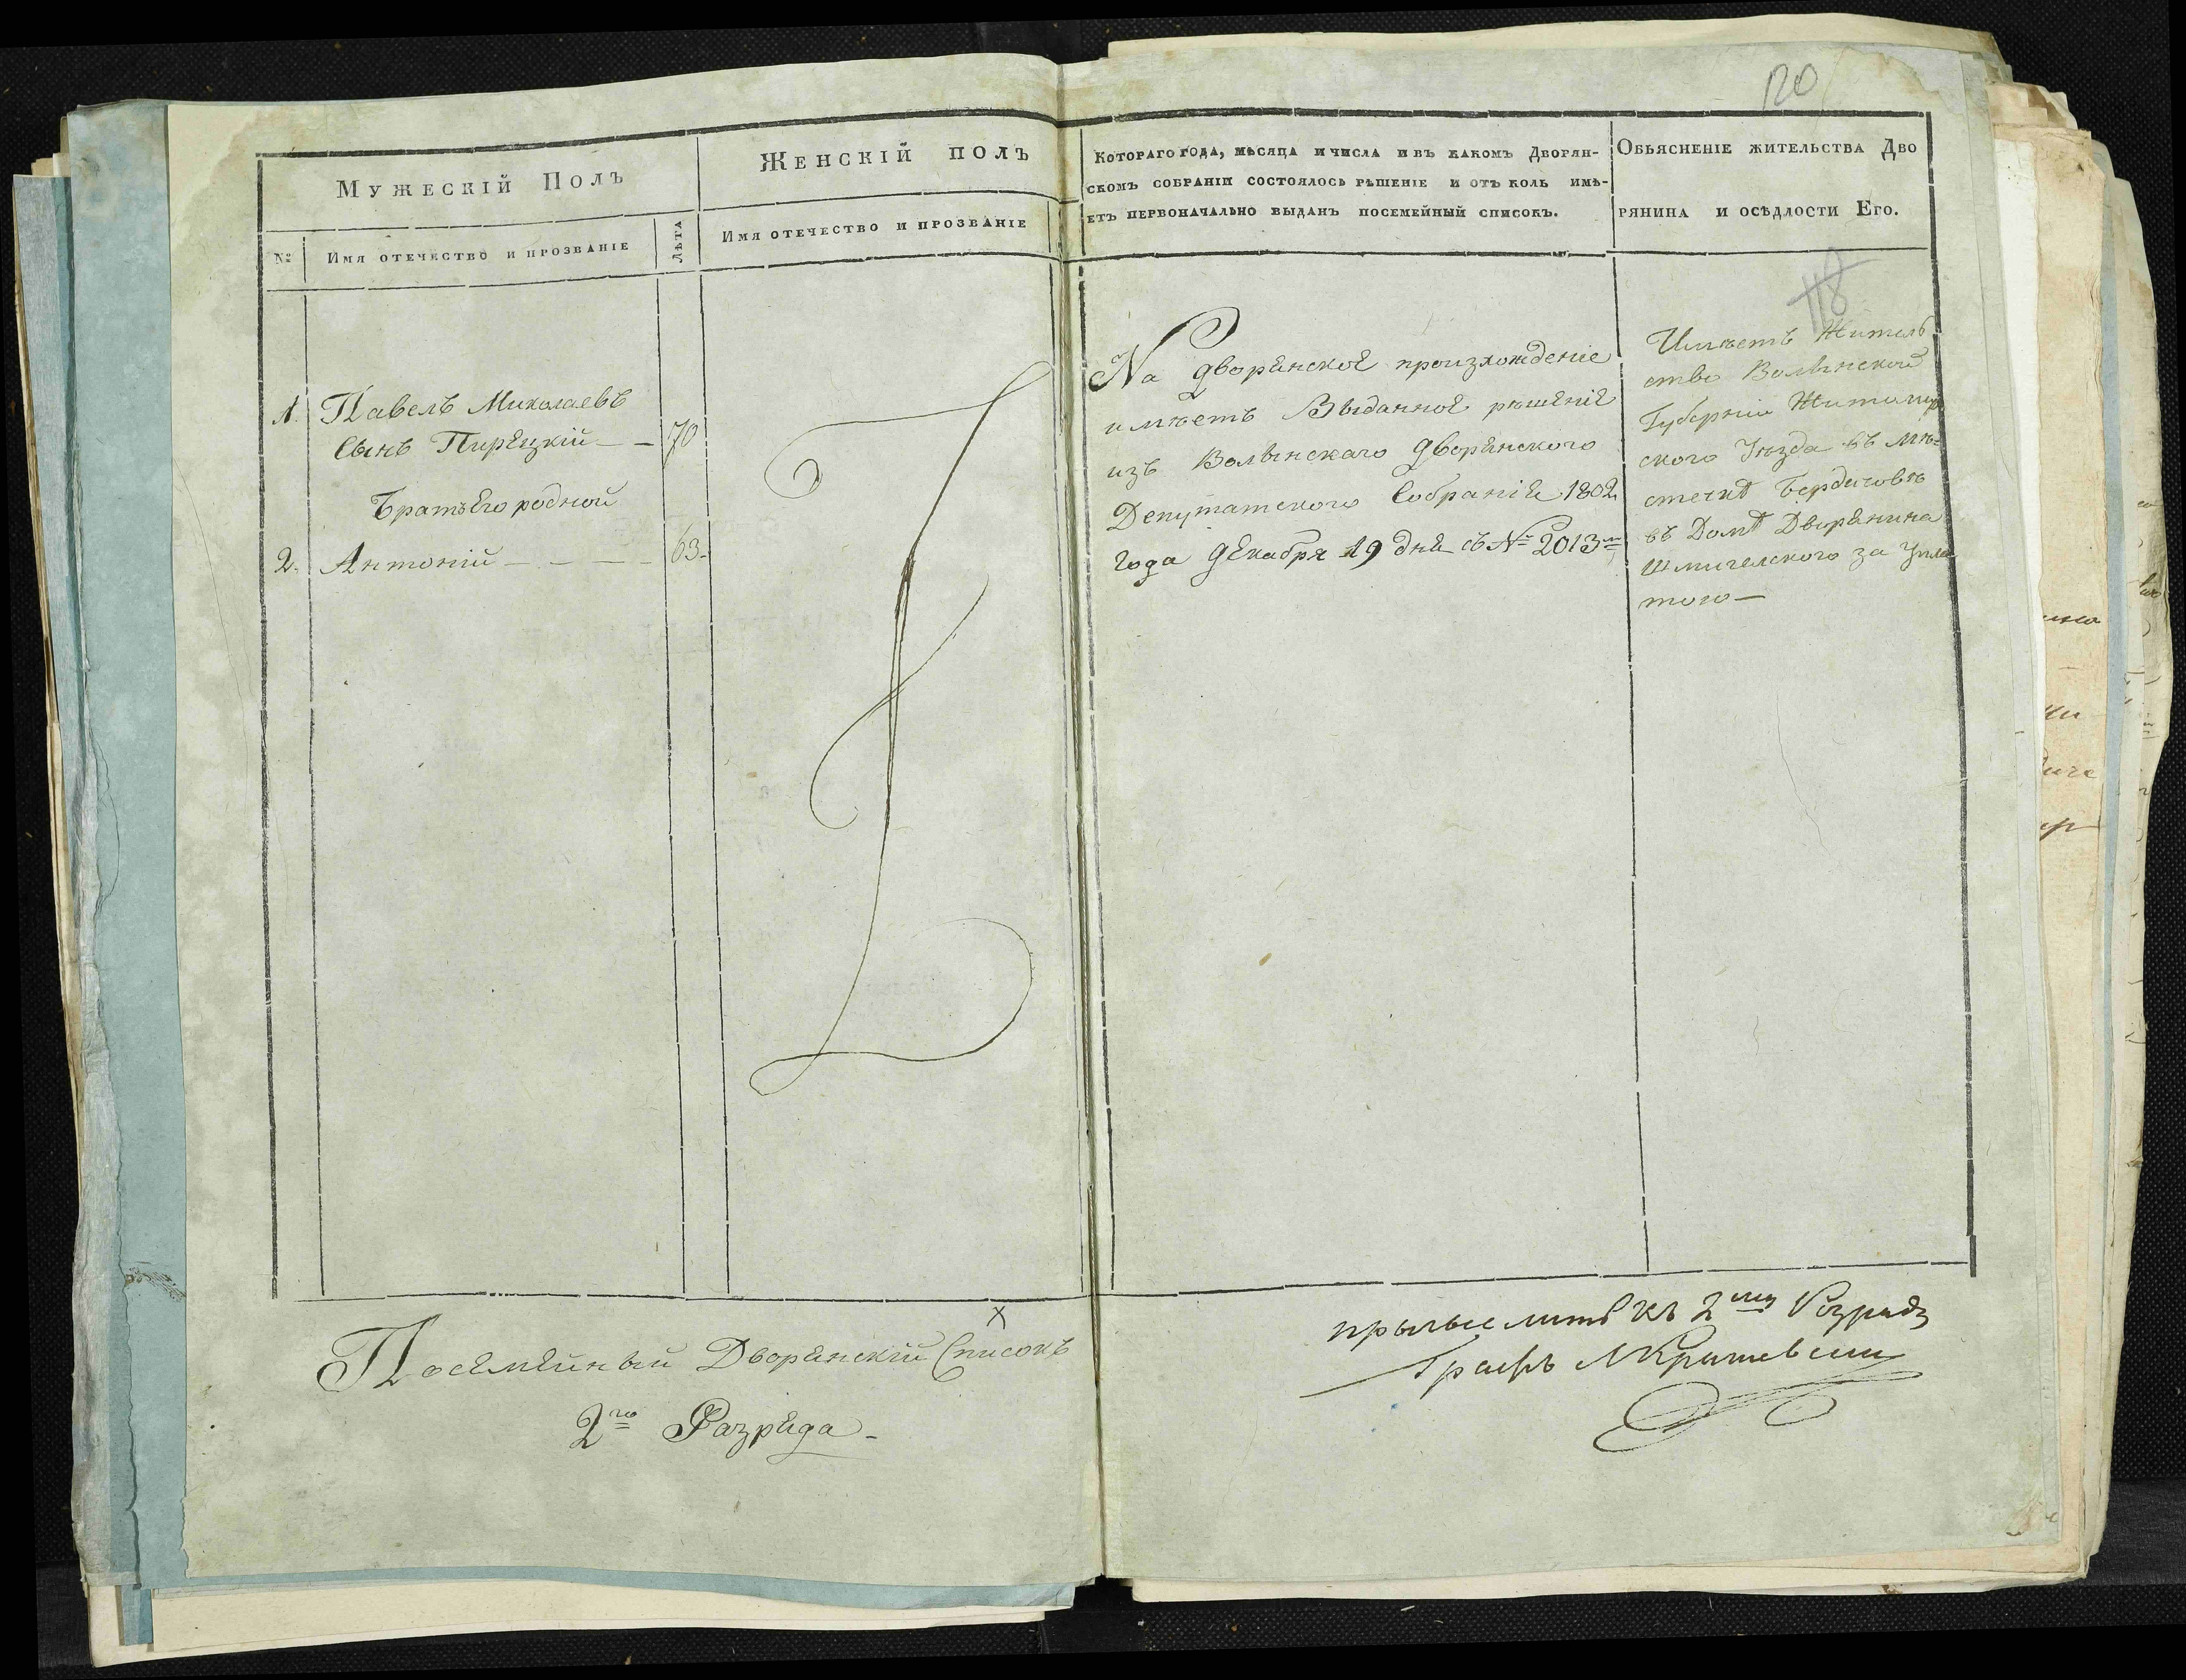 120
118
Мужескій Полъ
Женскій полъ
№
Имя отечество и прозваніе
Лѣта
Имя отечество и прозваніе
Котораго года, мѣсяца и числа и въ какомъ Дворян-
скомъ собраніи состоялось рѣшеніе и отъ коль имѣ-
етъ первоначально выданъ посемейный списокъ.
Обьясненіе жительства Дво
рянина и осѣдлости Его.
1. Павелъ Миколаевъ
Сынъ Пирецкій — 70
Братъ Его родной
2. Антоній — — — 63
На дворянское произхожденіе
имѣетъ Выданное рѣшеніе
изъ Волынскаго дворянского
Депутатского Собранія 1802
года декабря 19 дня съ № 2013
Имѣетъ Житель
ство Волынской
Губерніи Житомир
ского Уѣзда въ мѣ-
стечкѣ Бердичовѣ
въ Домѣ Дворянина
Шмигелского за Упла
того —
Посемейный Дворянскій Списокъ
2го Разряда
къ 2му Розряду
Графъ